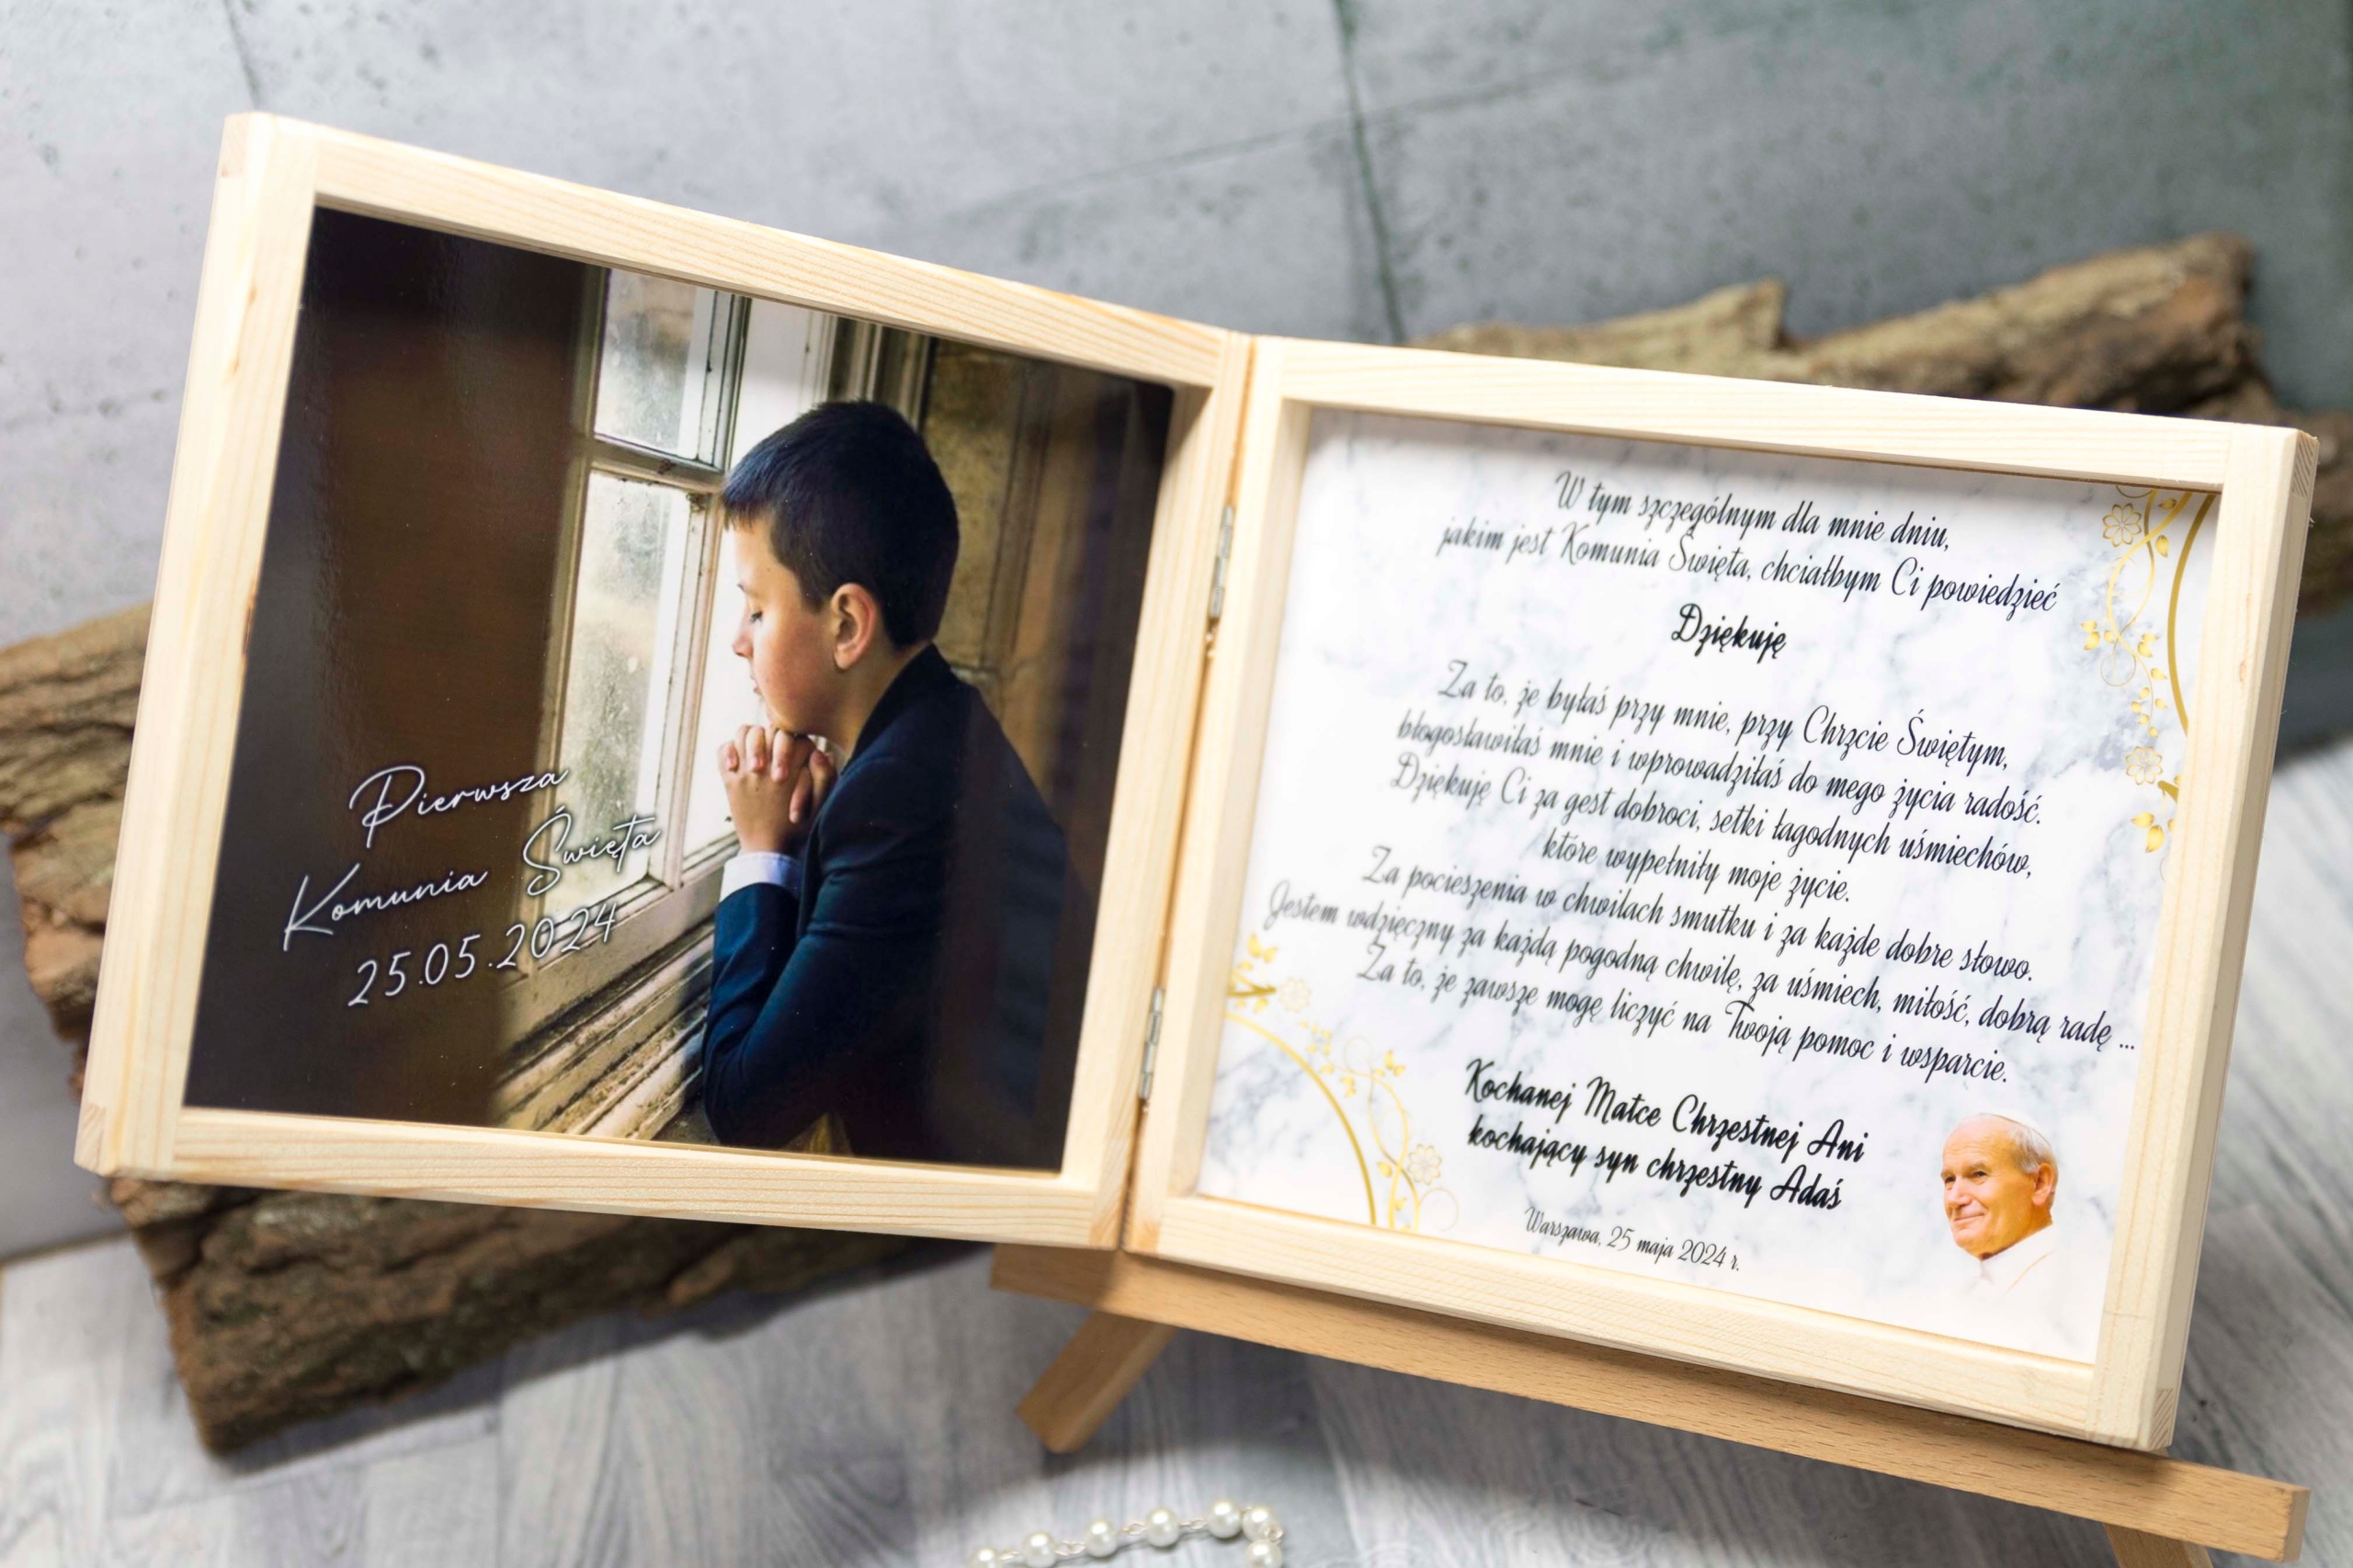 Pierwsza
Komunia Święta
25.05.2024
W tym szczególnym dla mnie dniu,
jakim jest Komunia Święta, chciałbym Ci powiedzieć
Dziękuję
Za to, że byłaś przy mnie, przy Chrzcie Świętym,
błogosławiłaś mnie i wprowadziłaś do mego życia radość.
Dziękuję Ci za gest dobroci, setki łagodnych uśmiechów,
które wypełniły moje życie.
Za pocieszenia w chwilach smutku i za każde dobre słowo.
Jestem wdzięczny za każdą pogodną chwilę, za uśmiech, miłość, dobrą radę ...
Za to, że zawsze mogę liczyć na Twoją pomoc i wsparcie.
Kochanej Matce Chrzestnej Ani
kochający syn chrzestny Adaś
Warszawa, 25 maja 2024 r.